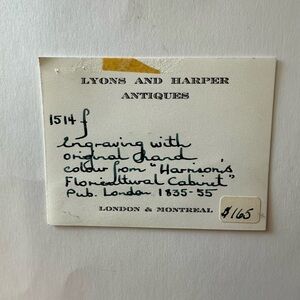 LYONS AND HARPER
ANTIQUES
1514 f
Engraving with
original hand
colour from "Harrison's
Floricultural Cabinet"
Pub. London 1835-55
LONDON & MONTREAL
$165